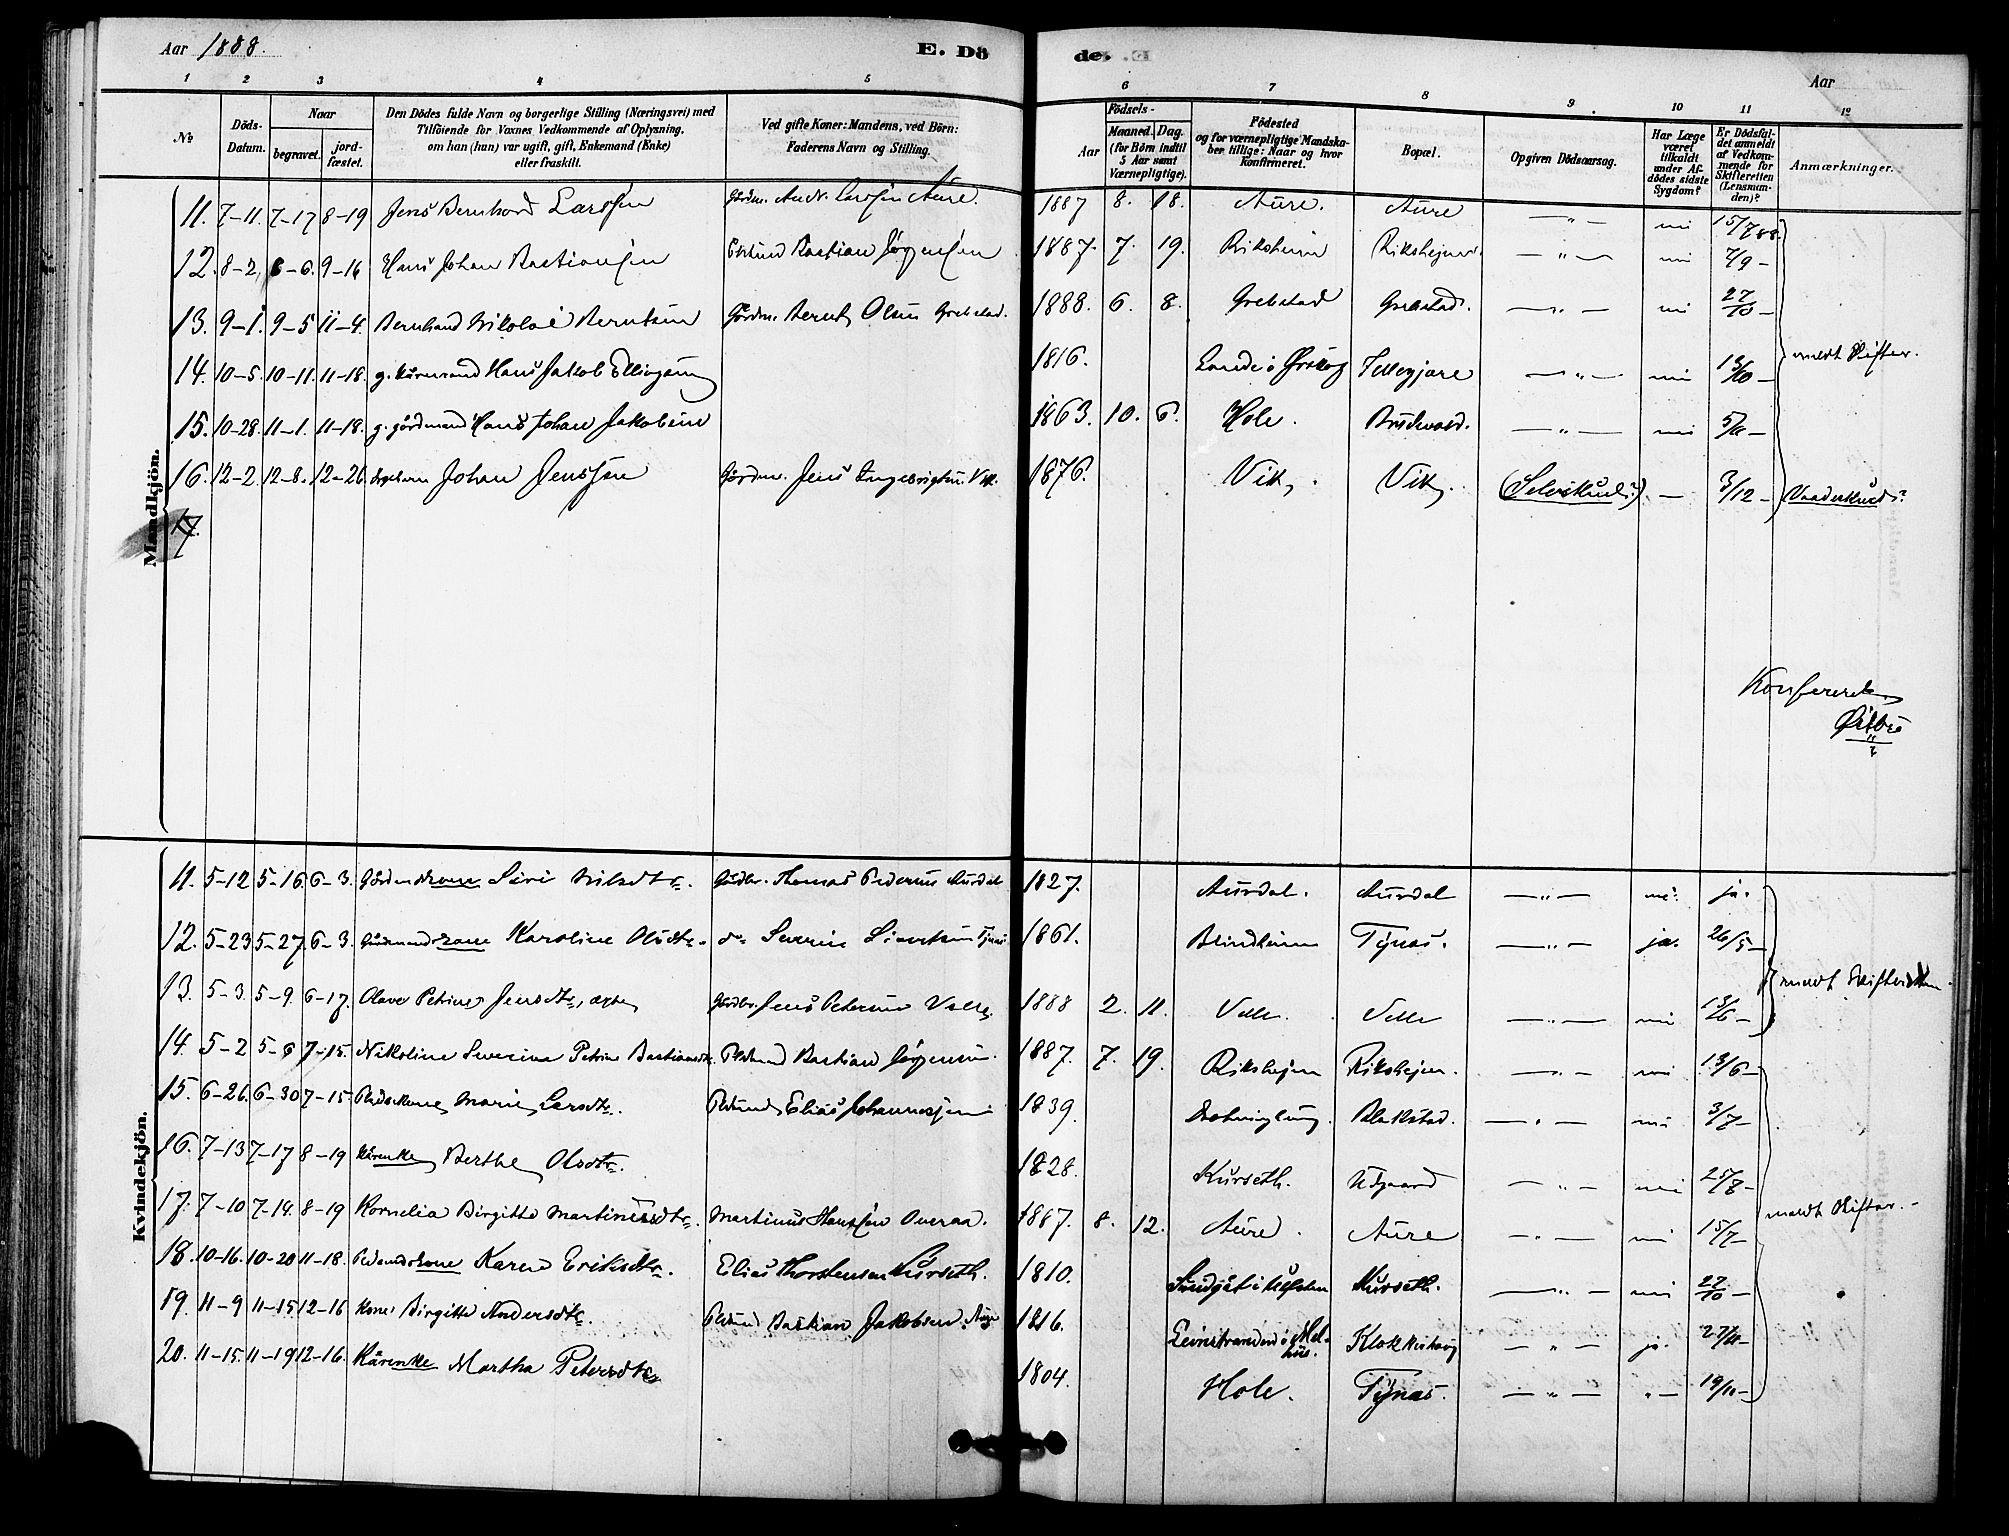 Aar 1888. E. Dö
1 2 3 4 5
No Döds-Datum. Naar begravet. jord-fæstet. Den Dödes fulde Navn og borgerlige Stilling (Næringsvei) med Tilföiende for Voxnes Vedkommende af Oplysning, om han (hun) var ugift, gift, Enkemand (Enke) eller fraskilt. Ved gifte Koner: Mandens, ved Börn: Faderens Navn og Stilling.
Mandkjön.
11. 7-11. 7-17 8-19 Jens Bernhard Larssen Gårdm. Andr. Larssen Aure.
12. 8-2, 8-6. 9-16 Hans Johan Bastiansen Bastian Jørgensen
13. 9-1. 9-5 11-4. Bernhard Nikolai Berntsen Gårdm. Bernt Olsen Grebstad.
14. 10-5. 10-11. 11-18. g. Hans Jakob Ellingsen
15. 10-28. 11-1. 11-18. g. gårdmand Hans Johan Jakobsen
16. 12-2. 12-8. 12-26 Johan Jenssen Gårdm. Jens Ingebrigtsen Vik.
17.
Kvindekjön.
11. 5-12 5-16 6-3. Gårdmdskone Siri Nilsdtr. Gårdbr. Thomas Pedersen Aurdal
12. 5-23 5-27. 6-3. Gårdmandskone Karoline Olsdtr. do Severin Sivertsen Tynæs
13. 5-3. 5-9. 6-17. Olave Petrine Jensdtr, ægte Gårdbr. Jens Petersen Velle
14. 5-2 5-6 7-15. Nikoline Severine Petrine Bastiansdtr. Bastian Jørgensen.
15. 6-26. 6-30 7-15 Marie Larsdtr. Elias Johannessen
16. 7-13 7-17 8-19 Kårenke Berthe Olsdtr.
17. 7-10 7-14. 8-19 Kornelia Birgitte Martinusdtr. Martinus Hanssen Overaa.
18. 10-16. 10-20 11-18. Karen Eriksdtr. Elias Thorstensen Kurseth.
19. 11-9 11-15 12-16 Kone Birgitte Andersdtr. Bastian Jakobsen
20. 11-15. 11-19 12-16. Kårenke Martha Petersdtr
de. Aar
6 7 8 9 10 11 12
Aar Födsels- Maaned. Dag. (for Börn indtil 5 Aar samt Værnepligtige). Födested og for værnepligtige Mandskaber tillige: Naar og hvor Konfirmeret. Bopæl. Opgiven Dödsaarsag. Har Læge været tilkaldt under Afdödes sidste Sygdom? Er Dödsfaldet anmeldt af Vedkommende for Skifteretten (Lensmanden)? Anmærkninger.
1887 8. 18. Aure. Aure — " — nei 15/7 88.
1887. 7. 19. Riksheim Rikshejm. — " — nei 7/9 —
1888. 6. 8. Grebstad Grebstad. — " — nei 27/10 —
1816. Lande i Ørskog — " — nei 13/10 — meldt Skifter.
1863. 10. 6. Hole. — " — nei 5/11 —
1876. Vik. Vik. (Selvskud?) — 3/12 — Vaadeskud?
Konfereret
1827. Aurdal. Aurdal — " — nei. ja.
1861. Blindheim Tynæs. — " — ja. 26/5 —
1888 2. 11. Velle. Velle — " — nei 13/6 — meldt Skifteretten.
1887. 7. 19. Rikshejm Rikshejm. — " — nei 13/6 —
1839. Blakstad. — " — nei 3/7 —
1828. Kurseth. Utgaard — " — nei 25/7 —
1887. 8. 12. Aure. Aure — " — nei 15/7 — meldt Skifter.
1810. Kurseth. — " — nei 27/10 —
1816. — " — ja. 27/11 —
1804. Hole. Tynæs. — " — " — 19/11 —